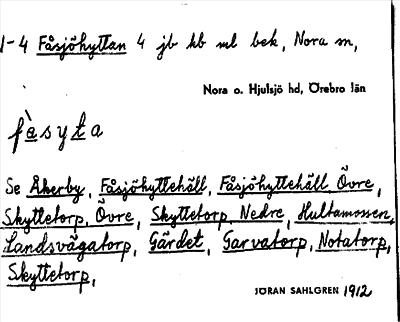 1-4 Fåsjöhyttan 4 jb kb ml bek, Nora sn,
Nora o. Hjulsjö hd, Örebro län
fàsyta
Se Åkerby, Fåsjöhyttehäll, Fåsjöhyttehäll Övre,
Skyttetorp, Övre, Skyttetorp Nedre, Hultamossen,
Landsvägatorp, Gärdet, Garvatorp, Notatorp,
Skyttetorp,
JÖRAN SAHLGREN 1912